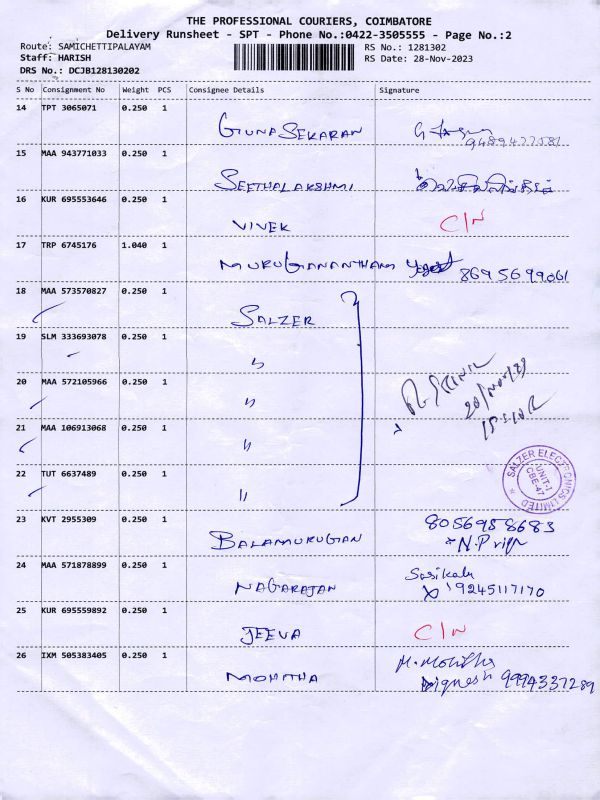 THE PROFESSIONAL COURIERS, COIMBATORE
Delivery Runsheet - SPT - Phone No.:0422-3505555 - Page No.:2
Route: SAMICHETTIPALAYAM
RS No.: 1281302
Staff: HARISH
RS Date: 28-Nov-2023
DRS No.: DCJB128130202
S No Consignment No Weight PCS Consignee Details Signature
14 TPT 3065071 0.250 1
GUNA SEKARAN
9489477581
15 MAA 943771033 0.250 1
SEETHALAKSHMI
16 KUR 695553646 0.250 1
VIVEK C/N
17 TRP 6745176 1.040 1
MURUGANANTHAM 8695699061
18 MAA 573570827 0.250 1
SALZER
19 SLM 333693078 0.250 1
"
20 MAA 572105966 0.250 1
"
21 MAA 106913068 0.250 1
"
22 TUT 6637489 0.250 1
"
SALZER ELECTRONICS LIMITED
UNIT-I
CBE-47
23 KVT 2955309 0.250 1
8056958683
BALAMURUGAN N.Priya
24 MAA 571878899 0.250 1
Sasikala
NAGARAJAN 9245117170
25 KUR 695559892 0.250 1
JEEVA C/N
26 IXM 505383405 0.250 1
MOHITHA
9994337289